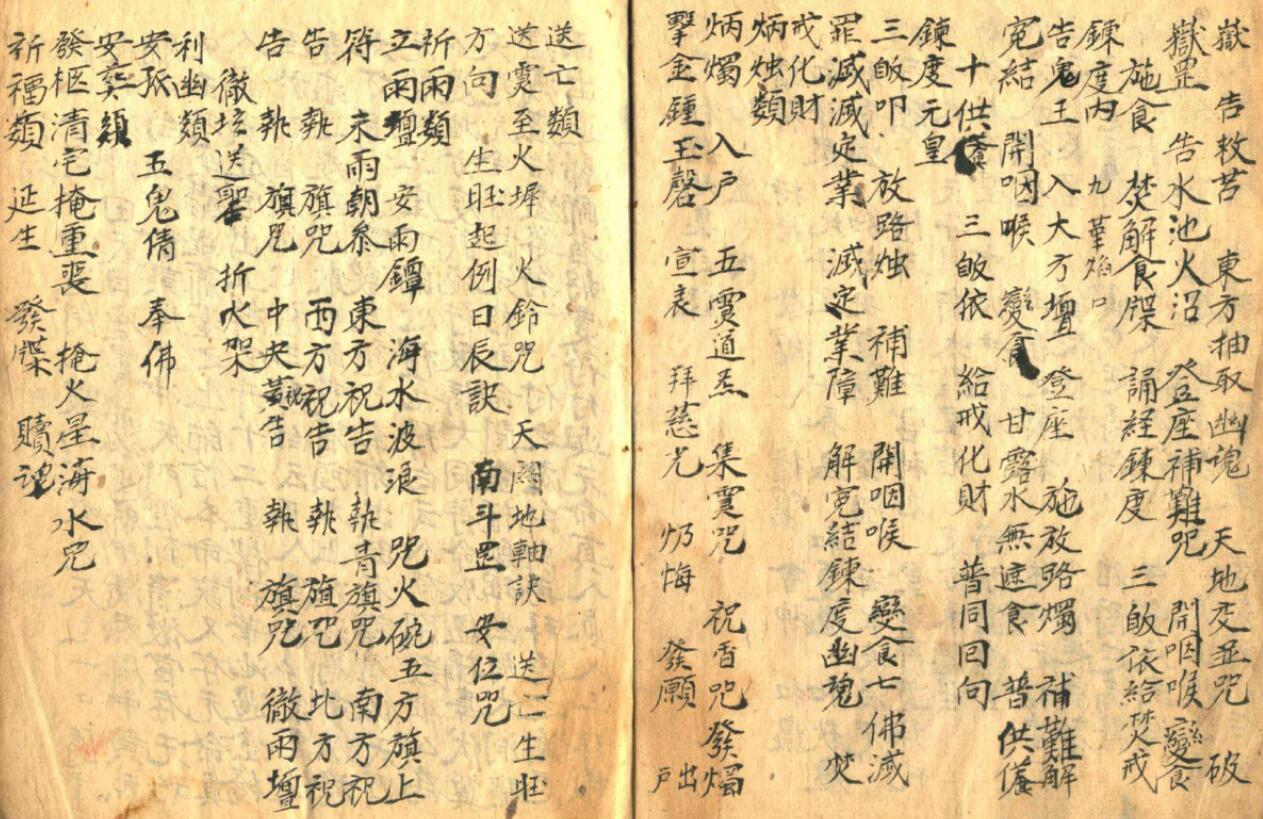 嶽 告救苦 東方抽取幽魂 天地交並咒 破
嶽罡 告水池火沼 登座補難咒 開咽喉 變食
施食 焚解食牒 誦経鍊度 三皈依給焚戒
鍊度內 九華焰口
告鬼王 入大方壇 登座 施放路燭 補難解
寃結 開咽喉 變食 甘露水無遮食 普供養
十供養 三皈依 給戒化財 普同回向
鍊度元皇
三皈叩 放路烛 補難 開咽喉 變食七佛滅
罪滅滅定業 滅定業障 解寃結鍊度幽魂 焚
戒化財
炳烛類
炳燭 入户 五霊道炁 集霊咒 祝香咒發燭
擊金鍾玉磬 宣衷 拜慈尤 悔 發願 出户
送亡類
送霊至火墀 火鈴咒 天關地軸訣 送亡生旺
方向 生旺起例日辰訣 南斗罡 安位咒
祈雨類
立雨壇 安雨鐔 海水波浪 咒火碗五方旗上
符 求雨朝叅 東方祝告 執青旗咒 南方祝
告 執 旗咒 西方祝告 執 旗咒 北方祝
告 執 旗咒 中央黃祝告 執 旗咒 徹雨壇
徹坛送聖 折火架
利幽類
安孤 五鬼倩 奉佛
安葬類
發柩清宅掩重丧 掩火星海水咒
祈福類 延生 發牒 贖魂